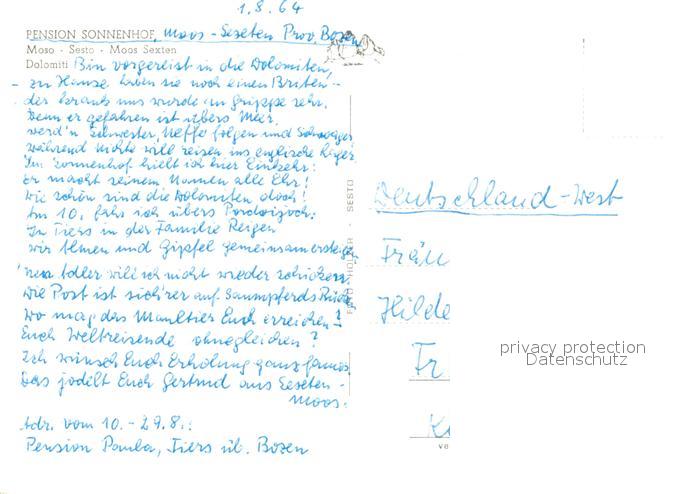 1.8.64
PENSION SONNENHOF, Moos - Sexten Prov. Bozen
Moso - Sesto - Moos Sexten
Dolomiti Bin vorgereist in die Dolomiten,
- zu Hause haben sie noch einen Briten -
der krank uns wurde an Grippe sehr.
Wenn er gefahren ist übers Meer,
werd'n Schwester, Neffe folgen und Schwager
während Nichte will reisen ins englische Lager
Im Sonnenhof hielt ich hier Einkehr:
Er macht seinem Namen alle Ehr!
Wie schön sind die Dolomiten doch!
Am 10. fahr ich übers Pordoijoch:
In Tiers in der Familie Reigen
wir Almen und Gipfel gemeinsam ersteigen
'nen Adler will ich nicht wieder schicken.
Die Post ist sich'rer auf Saumpferds Rücken
Wo mag das Maultier Euch erreichen?
Euch Weltreisende ohnegleichen?
Ich wünsch Euch Erholung ganz famos
Das jodelt Euch Gertrud aus Sexten -
Moos.
Adr. vom 10. - 29.8.:
Pension Paula, Tiers üb. Bozen
FOTO HOLZER - SESTO
Deutschland-West
Fräu
Hilde
Fr
K
ve
privacy protection
Datenschutz